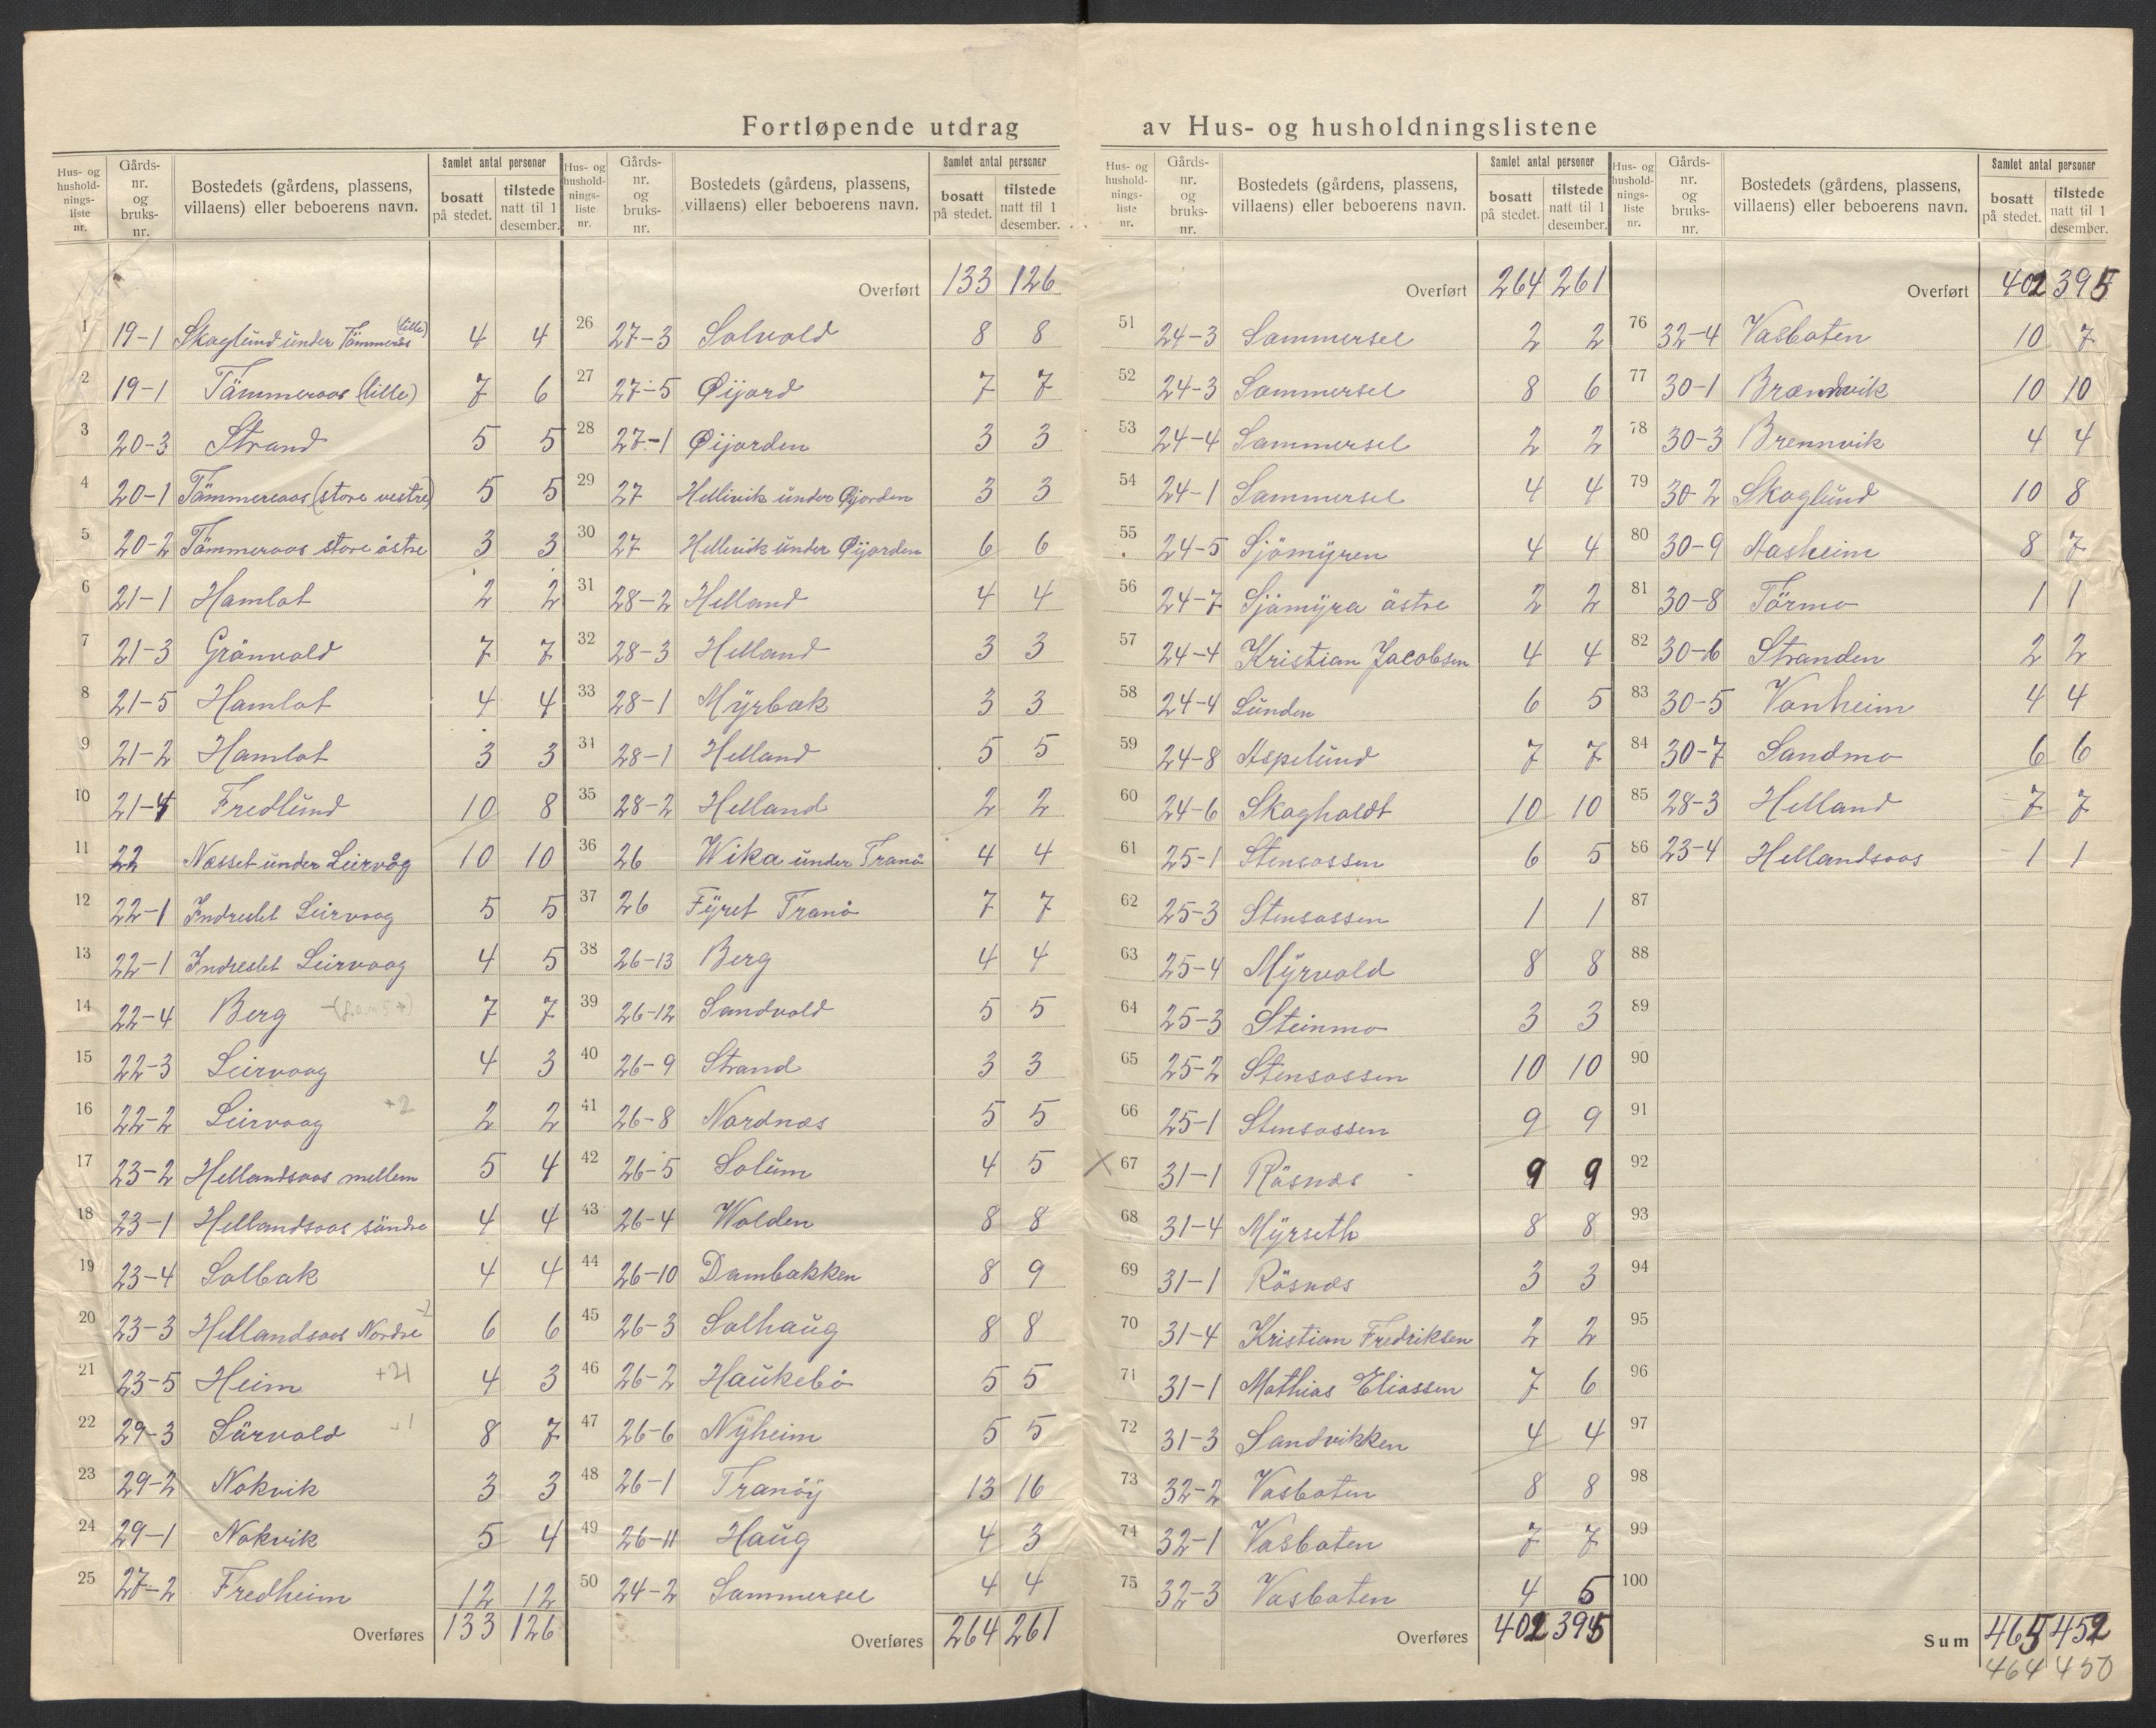 Fortløpende utdrag av Hus- og husholdningslistene
Hus- og hushold-nings-liste nr. | Gårds-nr. og bruks-nr. | Bostedets (gårdens, plassens, villaens) eller beboerens navn. | Samlet antal personer | bosatt på stedet. | tilstede natt til 1 desember.
1 19-1 Skoglund under Tømmeraas (lille) 4 4
2 19-1 Tömmeraas (lille) 7 6
3 20-3 Strand 5 5
4 20-1 Tömmeraas (store vestre) 5 5
5 20-2 Tömmeraas store östre 3 3
6 21-1 Hamlot 2 2
7 21-3 Grönvold 7 7
8 21-5 Hamlot 4 4
9 21-2 Hamlot 3 3
10 21-4 Fredlund 10 8
11 22 Næsset under Leirvåg 10 10
12 22-1 Indreslet Leirvaag 5 5
13 22-1 Indreslet Leirvaag 4 5
14 22-4 Berg 7 7
15 22-3 Leirvaag 4 3
16 22-2 Leirvaag +2 2 2
17 23-2 Hellandsaas mellem 5 4
18 23-1 Hellandsaas söndre 4 4
19 23-4 Solbak 4 4
20 23-3 Hellandsaas Nordre -2 6 6
21 23-5 Heim 4 3
22 29-3 Sörvold 8 7
23 29-2 Nokvik 3 3
24 29-1 Nokvik 5 4
25 27-2 Fredheim 12 12
Overføres 133 126
Hus- og hushold-nings-liste nr. | Gårds-nr. og bruks-nr. | Bostedets (gårdens, plassens, villaens) eller beboerens navn. | Samlet antal personer | bosatt på stedet. | tilstede natt til 1 desember.
Overført 133 126
26 27-3 Solvold 8 8
27 27-5 Øijord 7 7
28 27-1 Øijorden 3 3
29 27 Hellevik under Øijorden 3 3
30 27 Hellevik under Øijorden 6 6
31 28-2 Helland 4 4
32 28-3 Helland 3 3
33 28-1 Myrbak 3 3
34 28-1 Helland 5 5
35 28-2 Helland 2 2
36 26 Wika under Tranö 4 4
37 26 Fyret Tranö 7 7
38 26-13 Berg 4 4
39 26-12 Sandvold 5 5
40 26-9 Strand 3 3
41 26-8 Nordnæs 5 5
42 26-5 Solum 4 5
43 26-4 Wolden 8 8
44 26-10 Dambakken 8 9
45 26-3 Solhaug 8 8
46 26-2 Haukebö 5 5
47 26-6 Nyheim 5 5
48 26-1 Tranöy 13 16
49 26-11 Haug 4 3
50 24-2 Sommersel 4 4
Overføres 264 261
Hus- og hushold-nings-liste nr. | Gårds-nr. og bruks-nr. | Bostedets (gårdens, plassens, villaens) eller beboerens navn. | Samlet antal personer | bosatt på stedet. | tilstede natt til 1 desember.
Overført 264 261
51 24-3 Sommersel 2 2
52 24-3 Sommersel 8 6
53 24-4 Sammersel 2 2
54 24-1 Sammersel 4 4
55 24-5 Sjömyren 4 4
56 24-7 Sjömyra östre 2 2
57 24-4 Kristian Jacobsen 4 4
58 24-4 Lunden 6 5
59 24-8 Aspelund 7 7
60 24-6 Skogholdt 10 10
61 25-1 Stensossen 6 5
62 25-3 Stensossen 1 1
63 25-4 Myrvold 8 8
64 25-3 Steinmo 3 3
65 25-2 Stensossen 10 10
66 25-1 Stensossen 9 9
X 67 31-1 Rösnes 9 9
68 31-4 Myrseth 8 8
69 31-1 Rösnes 3 3
70 31-4 Kristian Fredriksen 2 2
71 31-1 Mathias Eliassen 7 6
72 31-3 Sandvikken 4 4
73 32-2 Vasboten 8 8
74 32-1 Vasboten 7 7
75 32-3 Vasboten 4 5
Overføres 402 395
Hus- og hushold-nings-liste nr. | Gårds-nr. og bruks-nr. | Bostedets (gårdens, plassens, villaens) eller beboerens navn. | Samlet antal personer | bosatt på stedet. | tilstede natt til 1 desember.
Overført 402 395
76 32-4 Vasboten 10 7
77 30-1 Brændvik 10 10
78 30-3 Brennvik 4 4
79 30-2 Skoglund 10 8
80 30-9 Aasheim 8 7
81 30-8 Förmo 1 1
82 30-6 Stranden 2 2
83 30-5 Vonheim 4 4
84 30-7 Sandmo 6 6
85 28-3 Helland 7 7
86 23-4 Hellandsaas 1 1
87
88
89
90
91
92
93
94
95
96
97
98
99
100
Sum 465 452
464 450